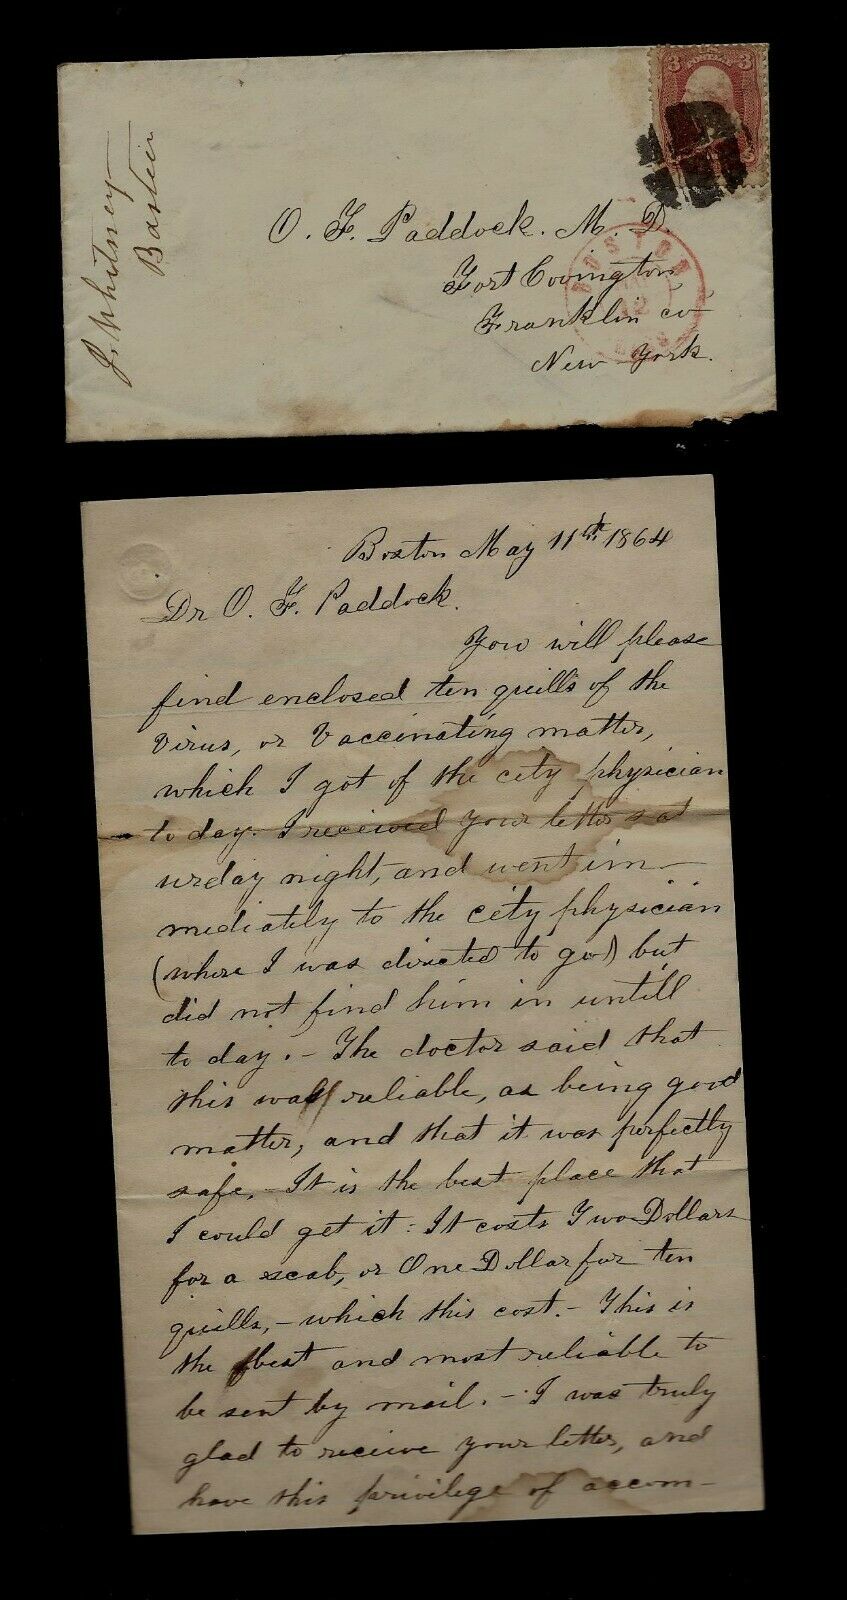 J. Whitney
Boston
3
3
O. F. Paddock. M. D.
Fort Covington,
Franklin co
New York.
BOSTON
12
Boston May 11th 1864
Dr O. F. Paddock.
You will please
find enclosed ten quills of the
Virus, or Vaccinating matter,
which I got of the city physician
to day. I received your letter sat
urday night, and went im-
mediately to the city physician
(where I was directed to go) but
did not find him in untill
to day. - The doctor said that
this was reliable, as being good
matter, and that it was perfectly
safe. - It is the best place that
I could get it: It costs Two Dollars
for a scab, or One Dollar for ten
quills, - which this cost. - This is
the best and most reliable to
be sent by mail. - I was truly
glad to receive your letter, and
have this privilege of accom-